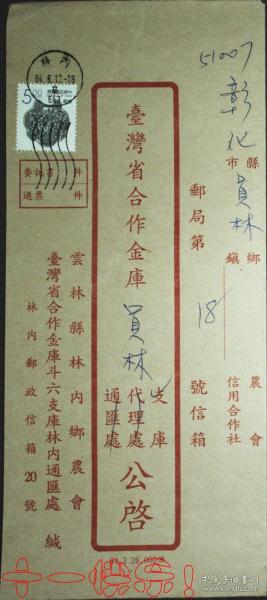 51007
彰化
市縣
員林
鎮鄉
郵局第 18 號信箱
農會
信用合作社
臺灣省合作金庫 員林
支庫
代理處
通匯處
公啓
5.00
林內
84.6.13.-18
委託書件
退票件
雲林縣林內鄉農會
臺灣省合作金庫斗六支庫林內通匯處 緘
林內郵政信箱20號
十一快樂!
孔夫子旧书网